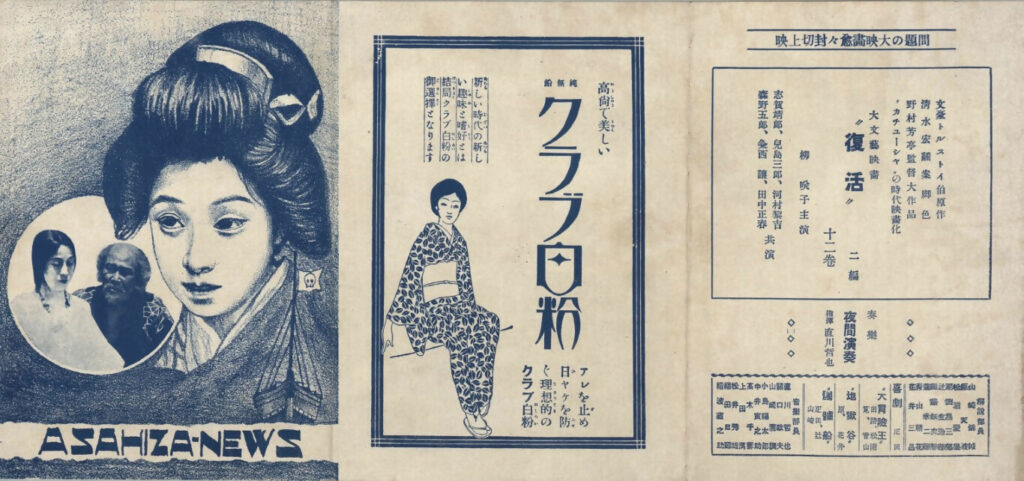 ASAHIZA-NEWS
高尚で美しい
純無鉛
クラブ白粉
新しい時代の新し
い趣味と嗜好とは
結局クラブ白粉の
御選擇となります
アレを止め
日ヤケを防
ぐ理想的の
クラブ白粉
問題の大映畫愈々封切上映
文豪トルストイ伯原作
清水宏飜案脚色
野村芳亭監督大作品
"カチユーシヤ"の時代映畫化
大文藝映畫
"復活" 二編
十二卷
柳咲子主演
志賀靖郎、兒島三郎、河村黎吉
森野五郎、粂西讓、田中正春 共演
奏樂
夜間演奏
指揮 直川哲也
解説部員
喜劇 正岡
地獄谷 原、花井
音樂部員